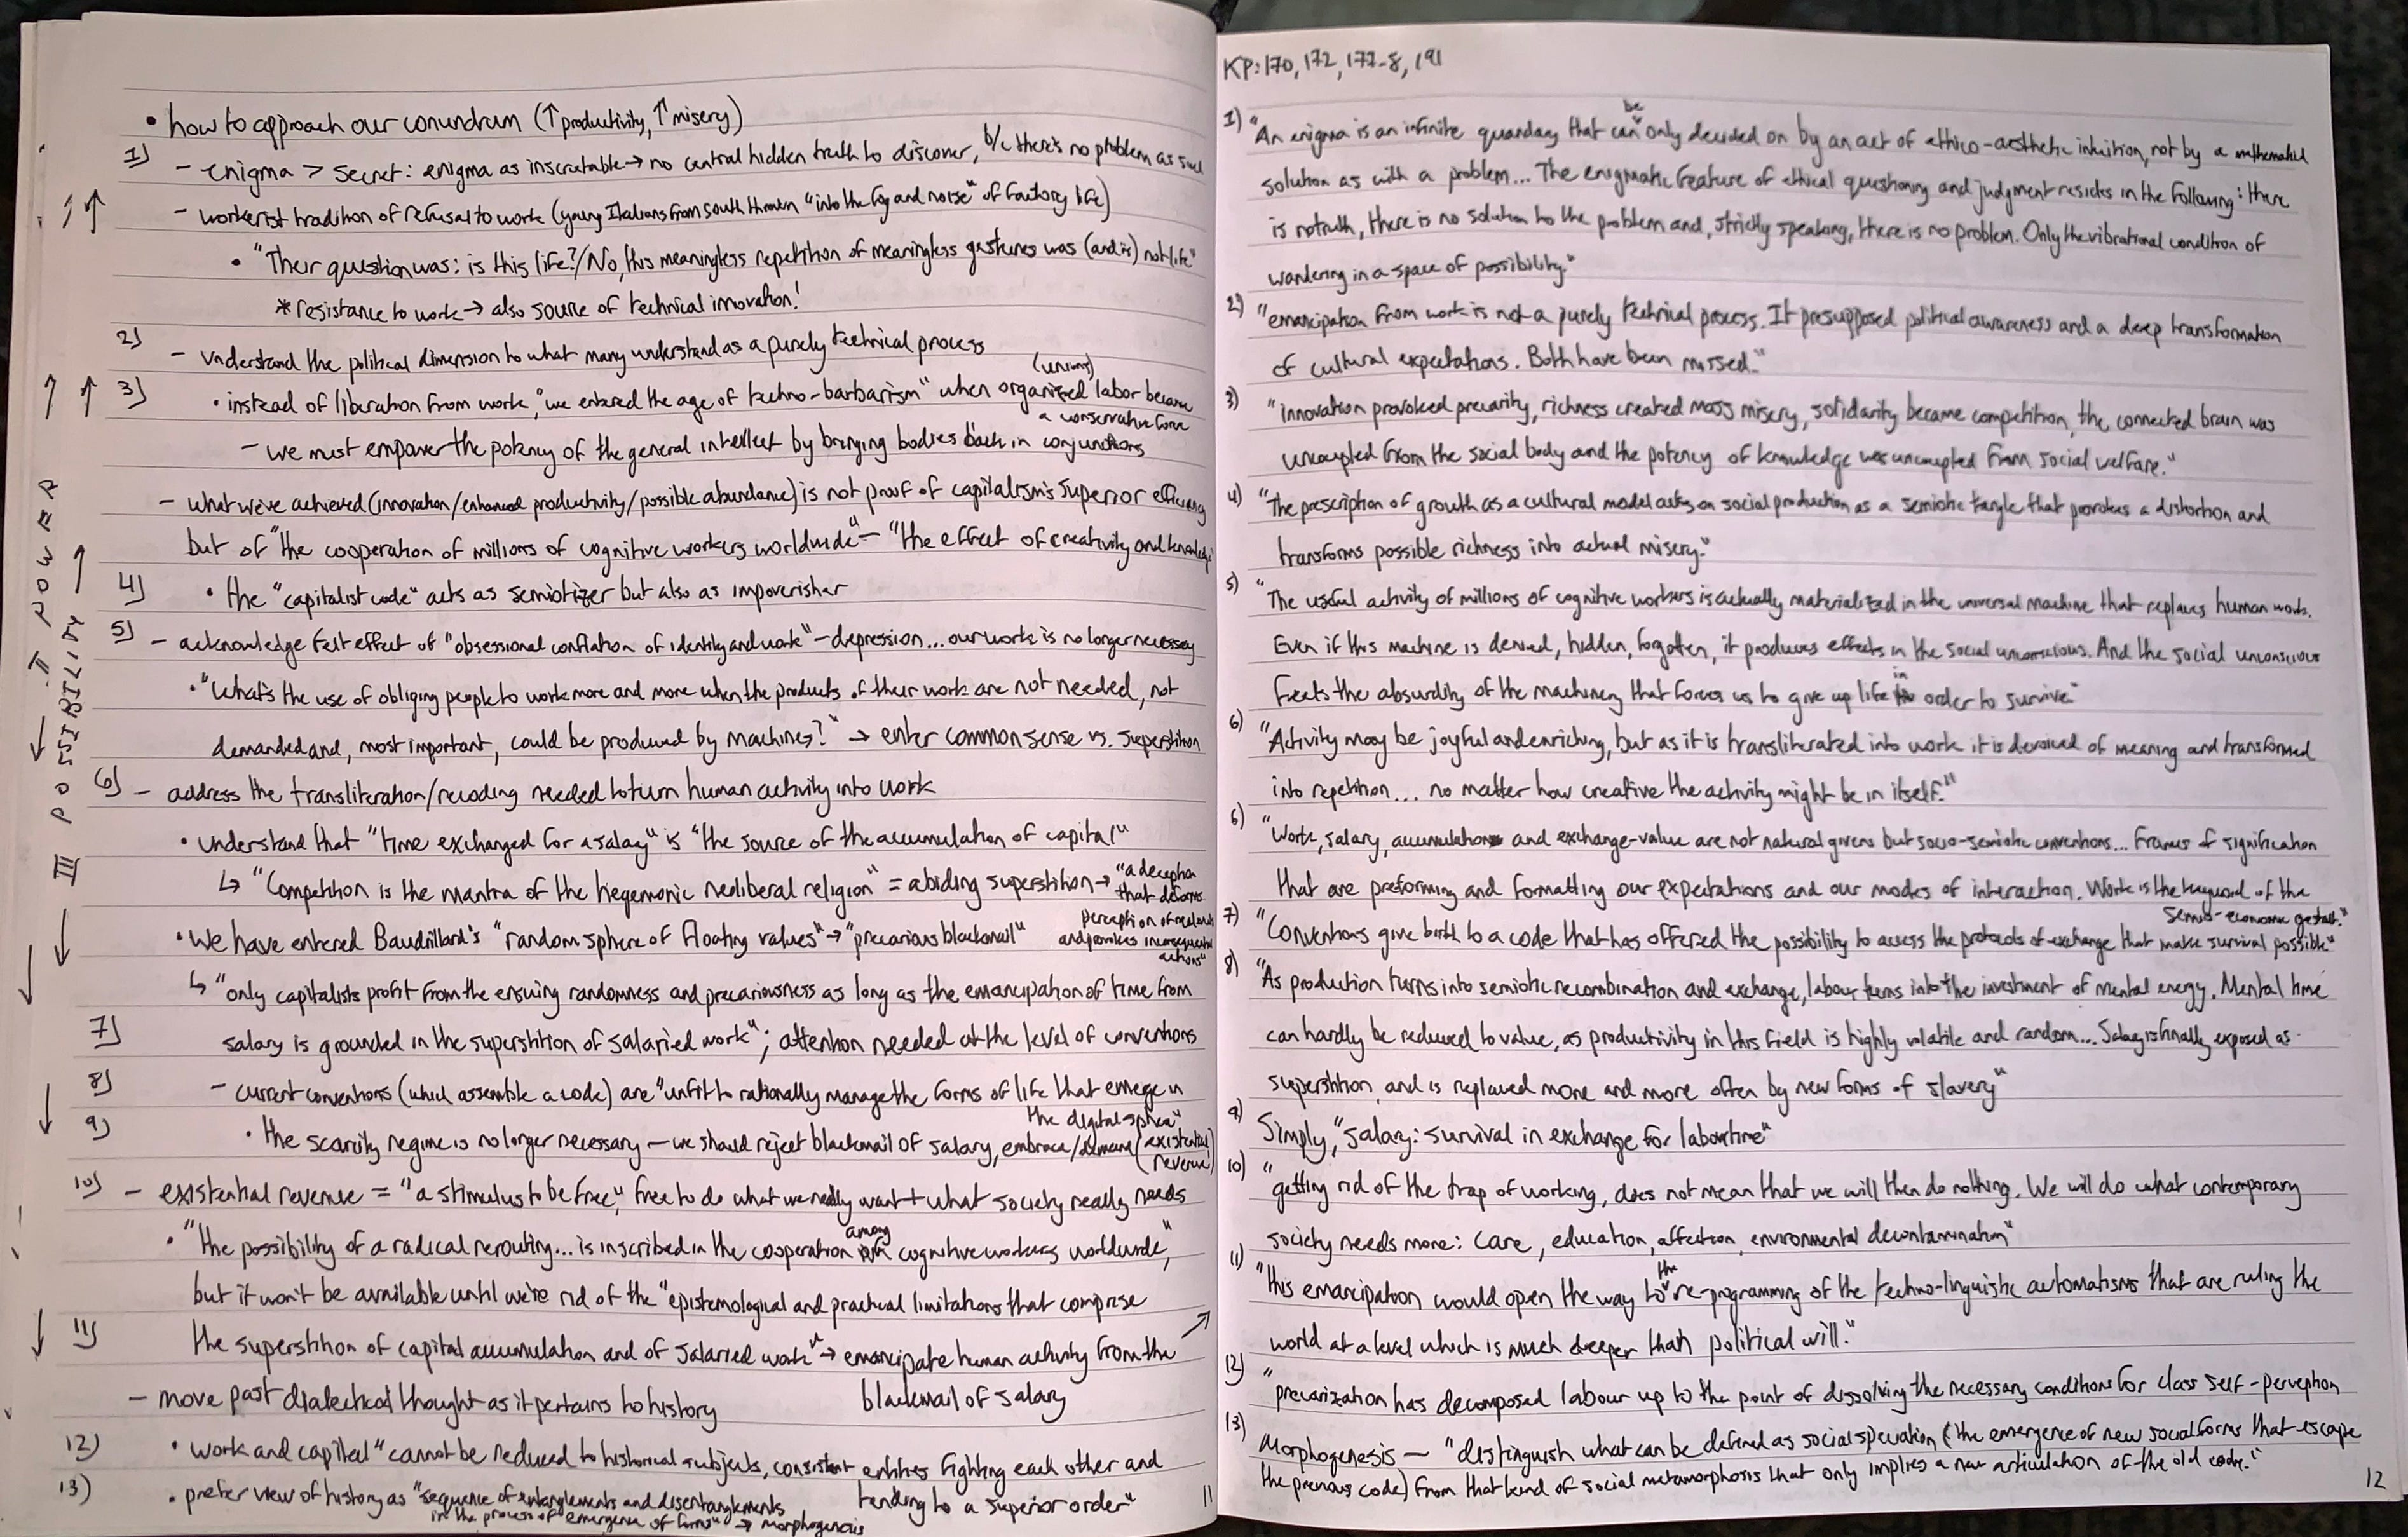 • how to approach our conundrum (↑ productivity, ↑ misery)
1) - enigma > secret: enigma as inscrutable → no central hidden truth to discover, b/c there's no problem as such
- workerist tradition of refusal to work (young Italians from South thrown "into the fog and noise" of factory life)
• "Their question was: is this life?/No, this meaningless repetition of meaningless gestures was (and is) not life"
* resistance to work → also source of technical innovation!
2) - understand the political dimension to what many understand as a purely technical process
3) • instead of liberation from work, "we entered the age of techno-barbarism" when organized (unions) labor became
a conservative force
- we must empower the potency of the general intellect by bringing bodies back in conjunctions
- what we've achieved (innovation/enhanced productivity/possible abundance) is not proof of capitalism's superior efficiency
but of "the cooperation of millions of cognitive workers worldwide" - "the effect of creativity and knowledge"
4) • the "capitalist code" acts as semiotizer but also as impoverisher
5) - acknowledge felt effect of "obsessional conflation of identity and work" - depression... our work is no longer necessary
• "What's the use of obliging people to work more and more when the products of their work are not needed, not
demanded and, most important, could be produced by machines?" → enter common sense vs. superstition
6) - address the transliteration/recoding needed to turn human activity into work
• understand that "time exchanged for a salary" is "the source of the accumulation of capital"
↳ "Competition is the mantra of the hegemonic neoliberal religion" = abiding superstition → "a deception
that deforms
perception of
and provokes
actions"
• We have entered Baudrillard's "random sphere of floating values" → "precarious blackmail"
↳ "only capitalists profit from the ensuing randomness and precariousness as long as the emancipation of time from
7) salary is grounded in the superstition of salaried work"; attention needed at the level of conventions
8) - current conventions (which assemble a code) are "unfit to rationally manage the forms of life that emerge in
the digital sphere"
9) • the scarcity regime is no longer necessary - we should reject blackmail of salary, embrace/demand (existential
revenue)
10) - existential revenue = "a stimulus to be free," free to do what we really want + what society really needs
• "the possibility of a radical rerouting... is inscribed in the cooperation among cognitive workers worldwide,"
but it won't be available until we're rid of the "epistemological and practical limitations that comprise
11) the superstition of capital accumulation and of salaried work" → emancipate human activity from the
blackmail of salary
- move past dialectical thought as it pertains to history
12) • work and capital "cannot be reduced to historical subjects, consistent entities fighting each other and
tending to a superior order"
13) • prefer view of history as "sequence of entanglements and disentanglements
in the process of emergence of forms" → morphogenesis
11
II POWER
III POSSIBILITY
KP: 170, 172, 177-8, 191
1) "An enigma is an infinite quandary that can be only decided on by an act of ethico-aesthetic intuition, not by a mathematical
solution as with a problem... The enigmatic feature of ethical questioning and judgment resides in the following: there
is no truth, there is no solution to the problem and, strictly speaking, there is no problem. Only the vibrational condition of
wandering in a space of possibility."
2) "emancipation from work is not a purely technical process. It presupposed political awareness and a deep transformation
of cultural expectations. Both have been missed."
3) "innovation provoked precarity, richness created mass misery, solidarity became competition, the connected brain was
uncoupled from the social body and the potency of knowledge was uncoupled from social welfare."
4) "The prescription of growth as a cultural model acts on social production as a semiotic tangle that provokes a distortion and
transforms possible richness into actual misery."
5) "The useful activity of millions of cognitive workers is actually materialized in the universal machine that replaces human work.
Even if this machine is denied, hidden, forgotten, it produces effects in the social unconscious. And the social unconscious
feels the absurdity of the machinery that forces us to give up life in order to survive"
6) "Activity may be joyful and enriching, but as it is transliterated into work it is devoiced of meaning and transformed
into repetition... no matter how creative the activity might be in itself."
6) "Work, salary, accumulation and exchange-value are not natural givens but socio-semiotic conventions... Frames of signification
that are preforming and formatting our expectations and our modes of interaction. Work is the keyword of the
semio-economic gestalt."
7) "Conventions give birth to a code that has offered the possibility to access the protocols of exchange that make survival possible"
8) "As production turns into semiotic recombination and exchange, labour turns into the investment of mental energy. Mental time
can hardly be reduced to value, as productivity in this field is highly volatile and random... Salary is finally exposed as
superstition, and is replaced more and more often by new forms of slavery"
9) Simply, "salary: survival in exchange for labour time"
10) "getting rid of the trap of working, does not mean that we will then do nothing. We will do what contemporary
society needs more: care, education, affection, environmental decontamination"
11) "this emancipation would open the way to the re-programming of the techno-linguistic automatisms that are ruling the
world at a level which is much deeper than political will."
12) "precarization has decomposed labour up to the point of dissolving the necessary conditions for class self-perception
13) Morphogenesis - "distinguish what can be defined as social speciation (the emergence of new social forms that escape
the previous code) from that kind of social metamorphosis that only implies a new articulation of the old code."
12